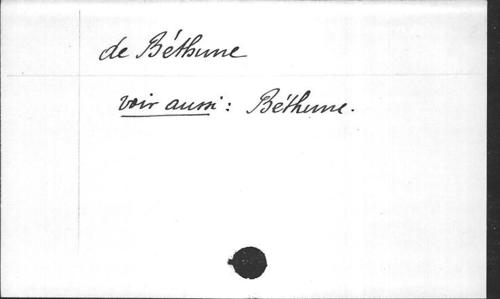 de Béthune
voir aussi : Béthune.